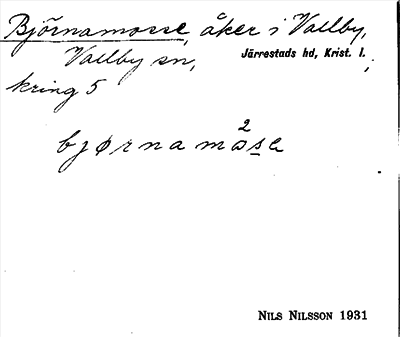 Björnamosse, åker i Vallby,
Vallby sn, Järrestads hd, Krist. l.
kring 5
bjørnamo²se
NILS NILSSON 1931